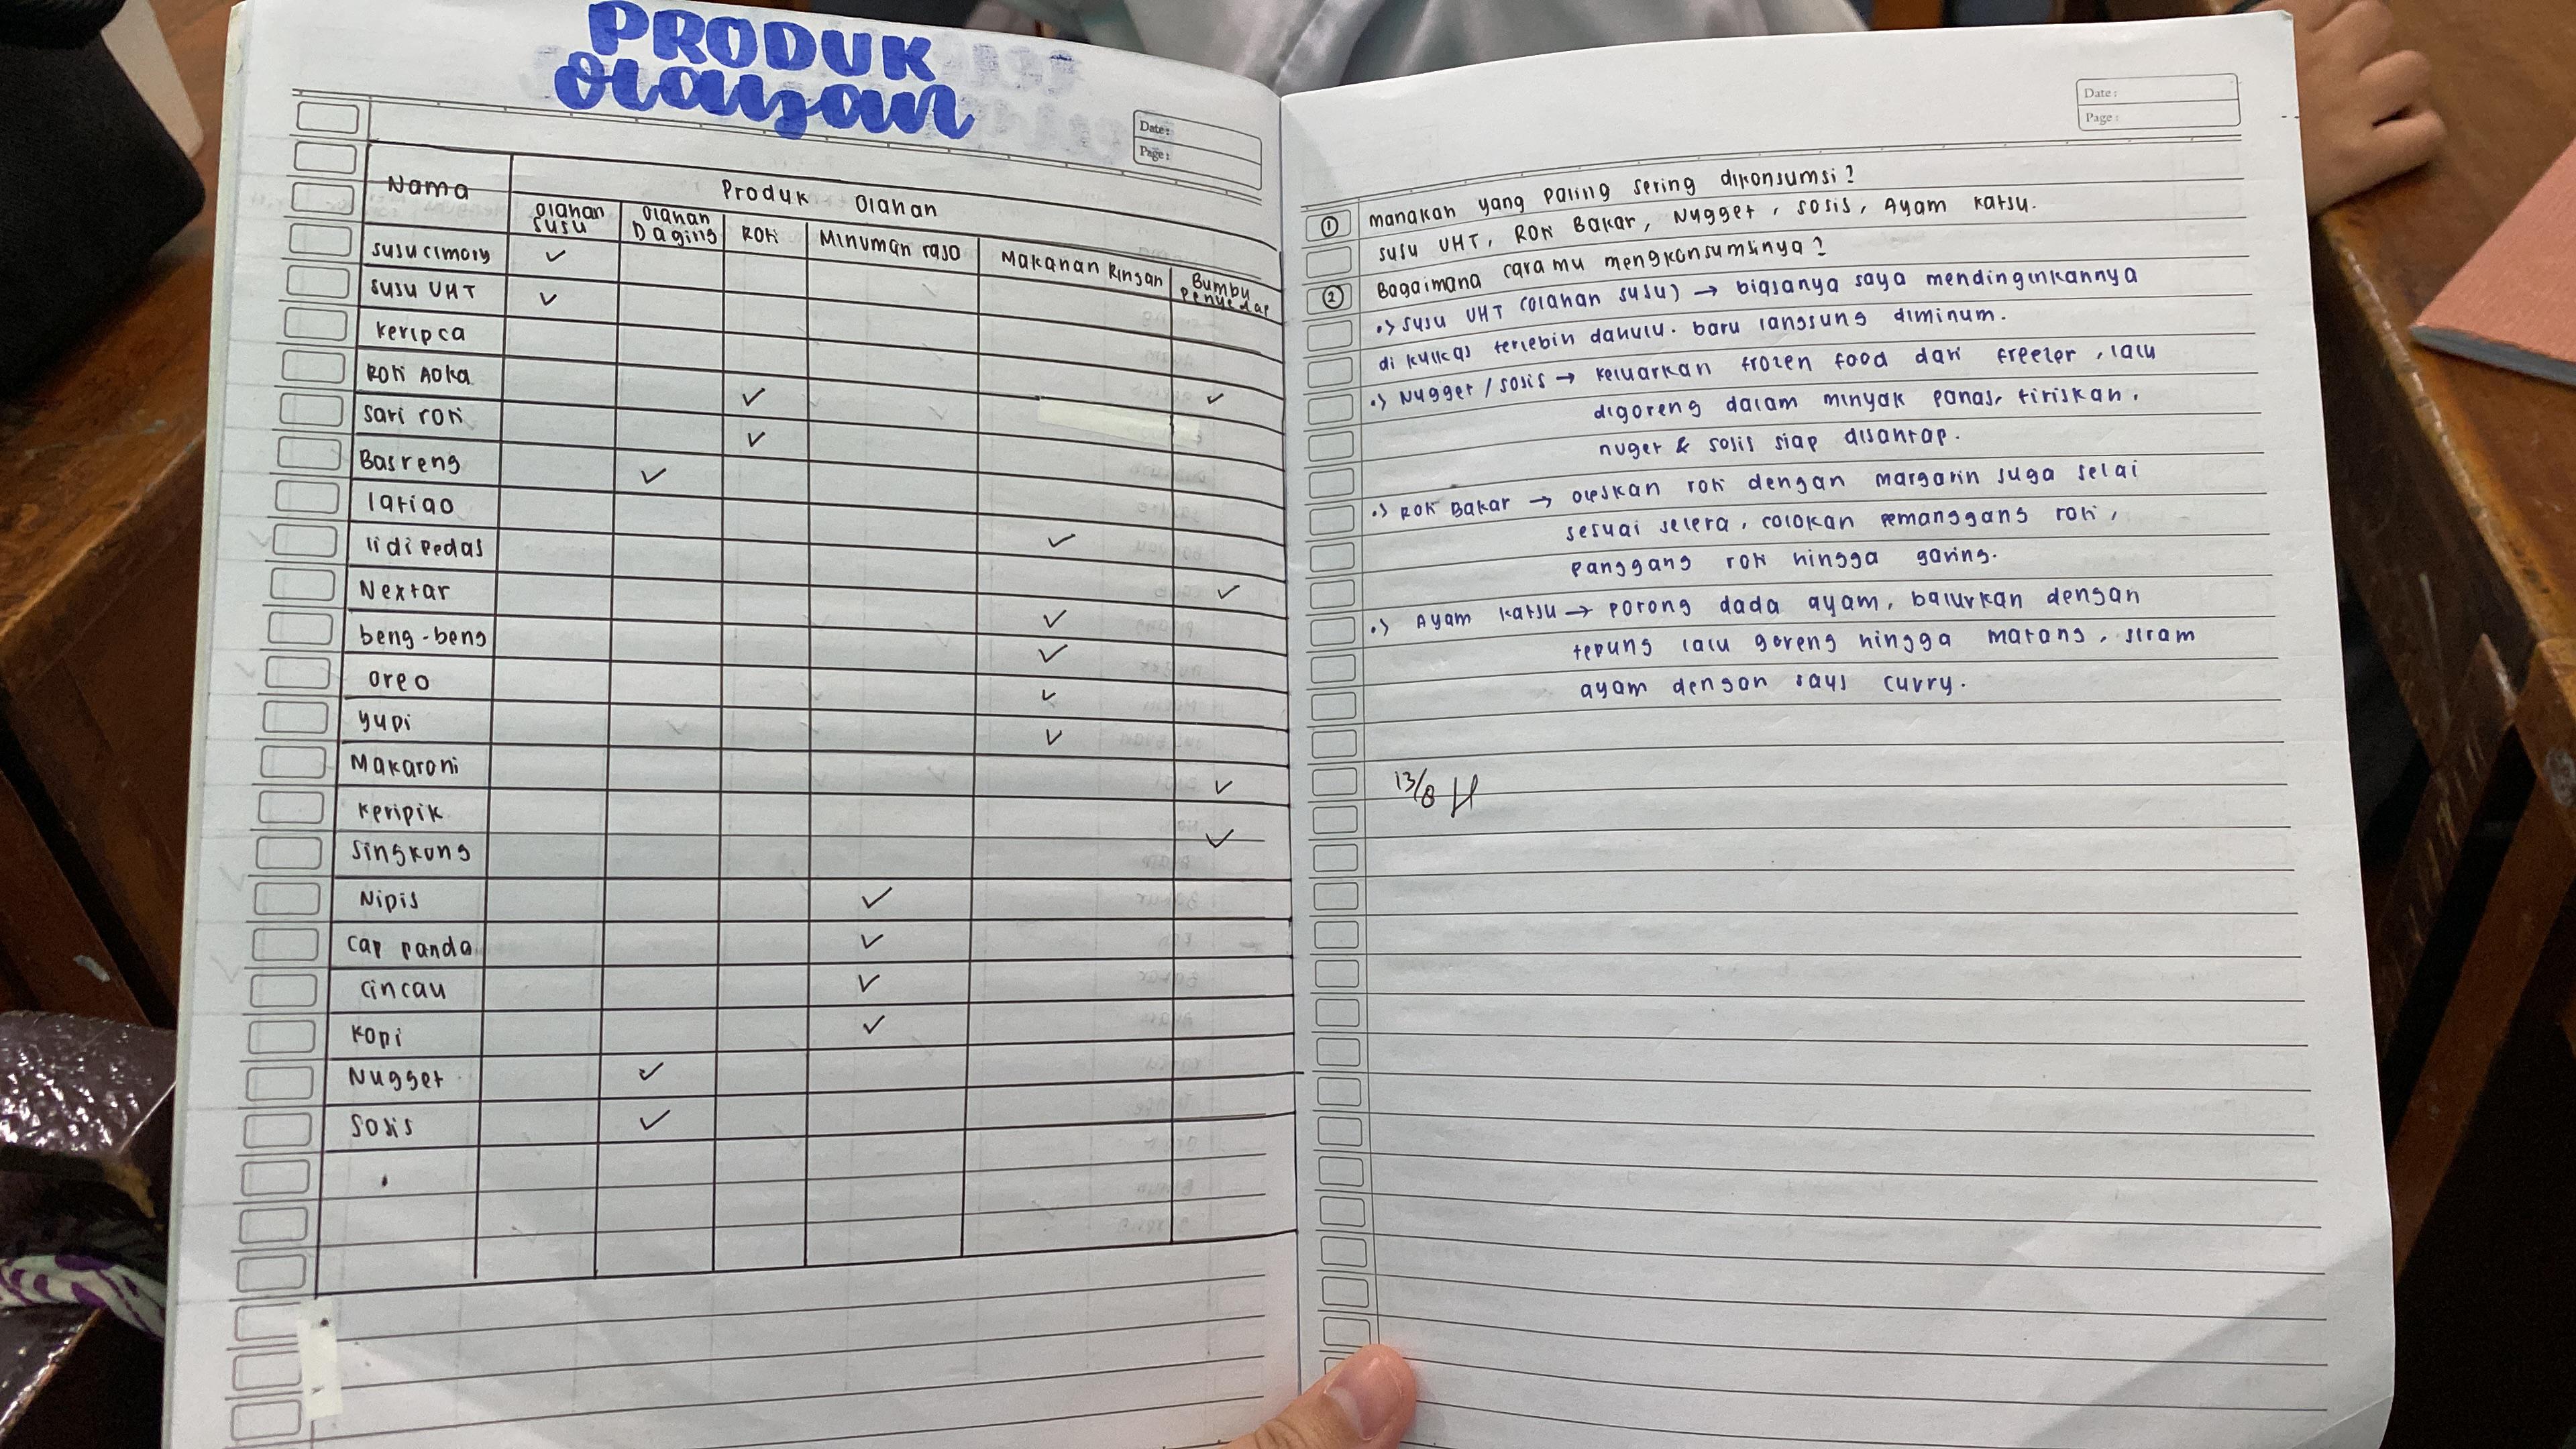 PRODUK
Olahan
Date:
Page:
Nama
Produk Olahan
Olahan susu
Olahan Daging
Roti
Minuman raso
Makanan Ringan
Bumbu penyedap
susu cimory ✓
susu UHT ✓
keripca
Roti Aoka ✓ ✓
sari roti ✓
Basreng ✓
latiao
lidi pedas ✓
Nextar ✓
beng-beng ✓
oreo ✓
yupi ✓
Makaroni ✓
keripik
singkong ✓
Nipis ✓
cap panda ✓
cincau ✓
kopi ✓
Nugget ✓
Sosis ✓
Date:
Page:
① manakah yang paling sering dikonsumsi?
susu UHT, Roti Bakar, Nugget, sosis, Ayam katsu.
② Bagaimana cara mu mengkonsumsinya?
•> susu UHT (olahan susu) → biasanya saya mendinginkannya
di kulkas terlebih dahulu. baru langsung diminum.
•> Nugget / sosis → keluarkan frozen food dari freezer, lalu
digoreng dalam minyak panas, tiriskan.
nuget & sosis siap disantap.
•> Roti Bakar → oleskan roti dengan margarin suga selai
sesuai selera, colokan pemanggang roti,
panggang roti hingga garing.
•> Ayam katsu → potong dada ayam, balurkan dengan
tepung lalu goreng hingga matang, siram
ayam dengan saus curry.
13/8